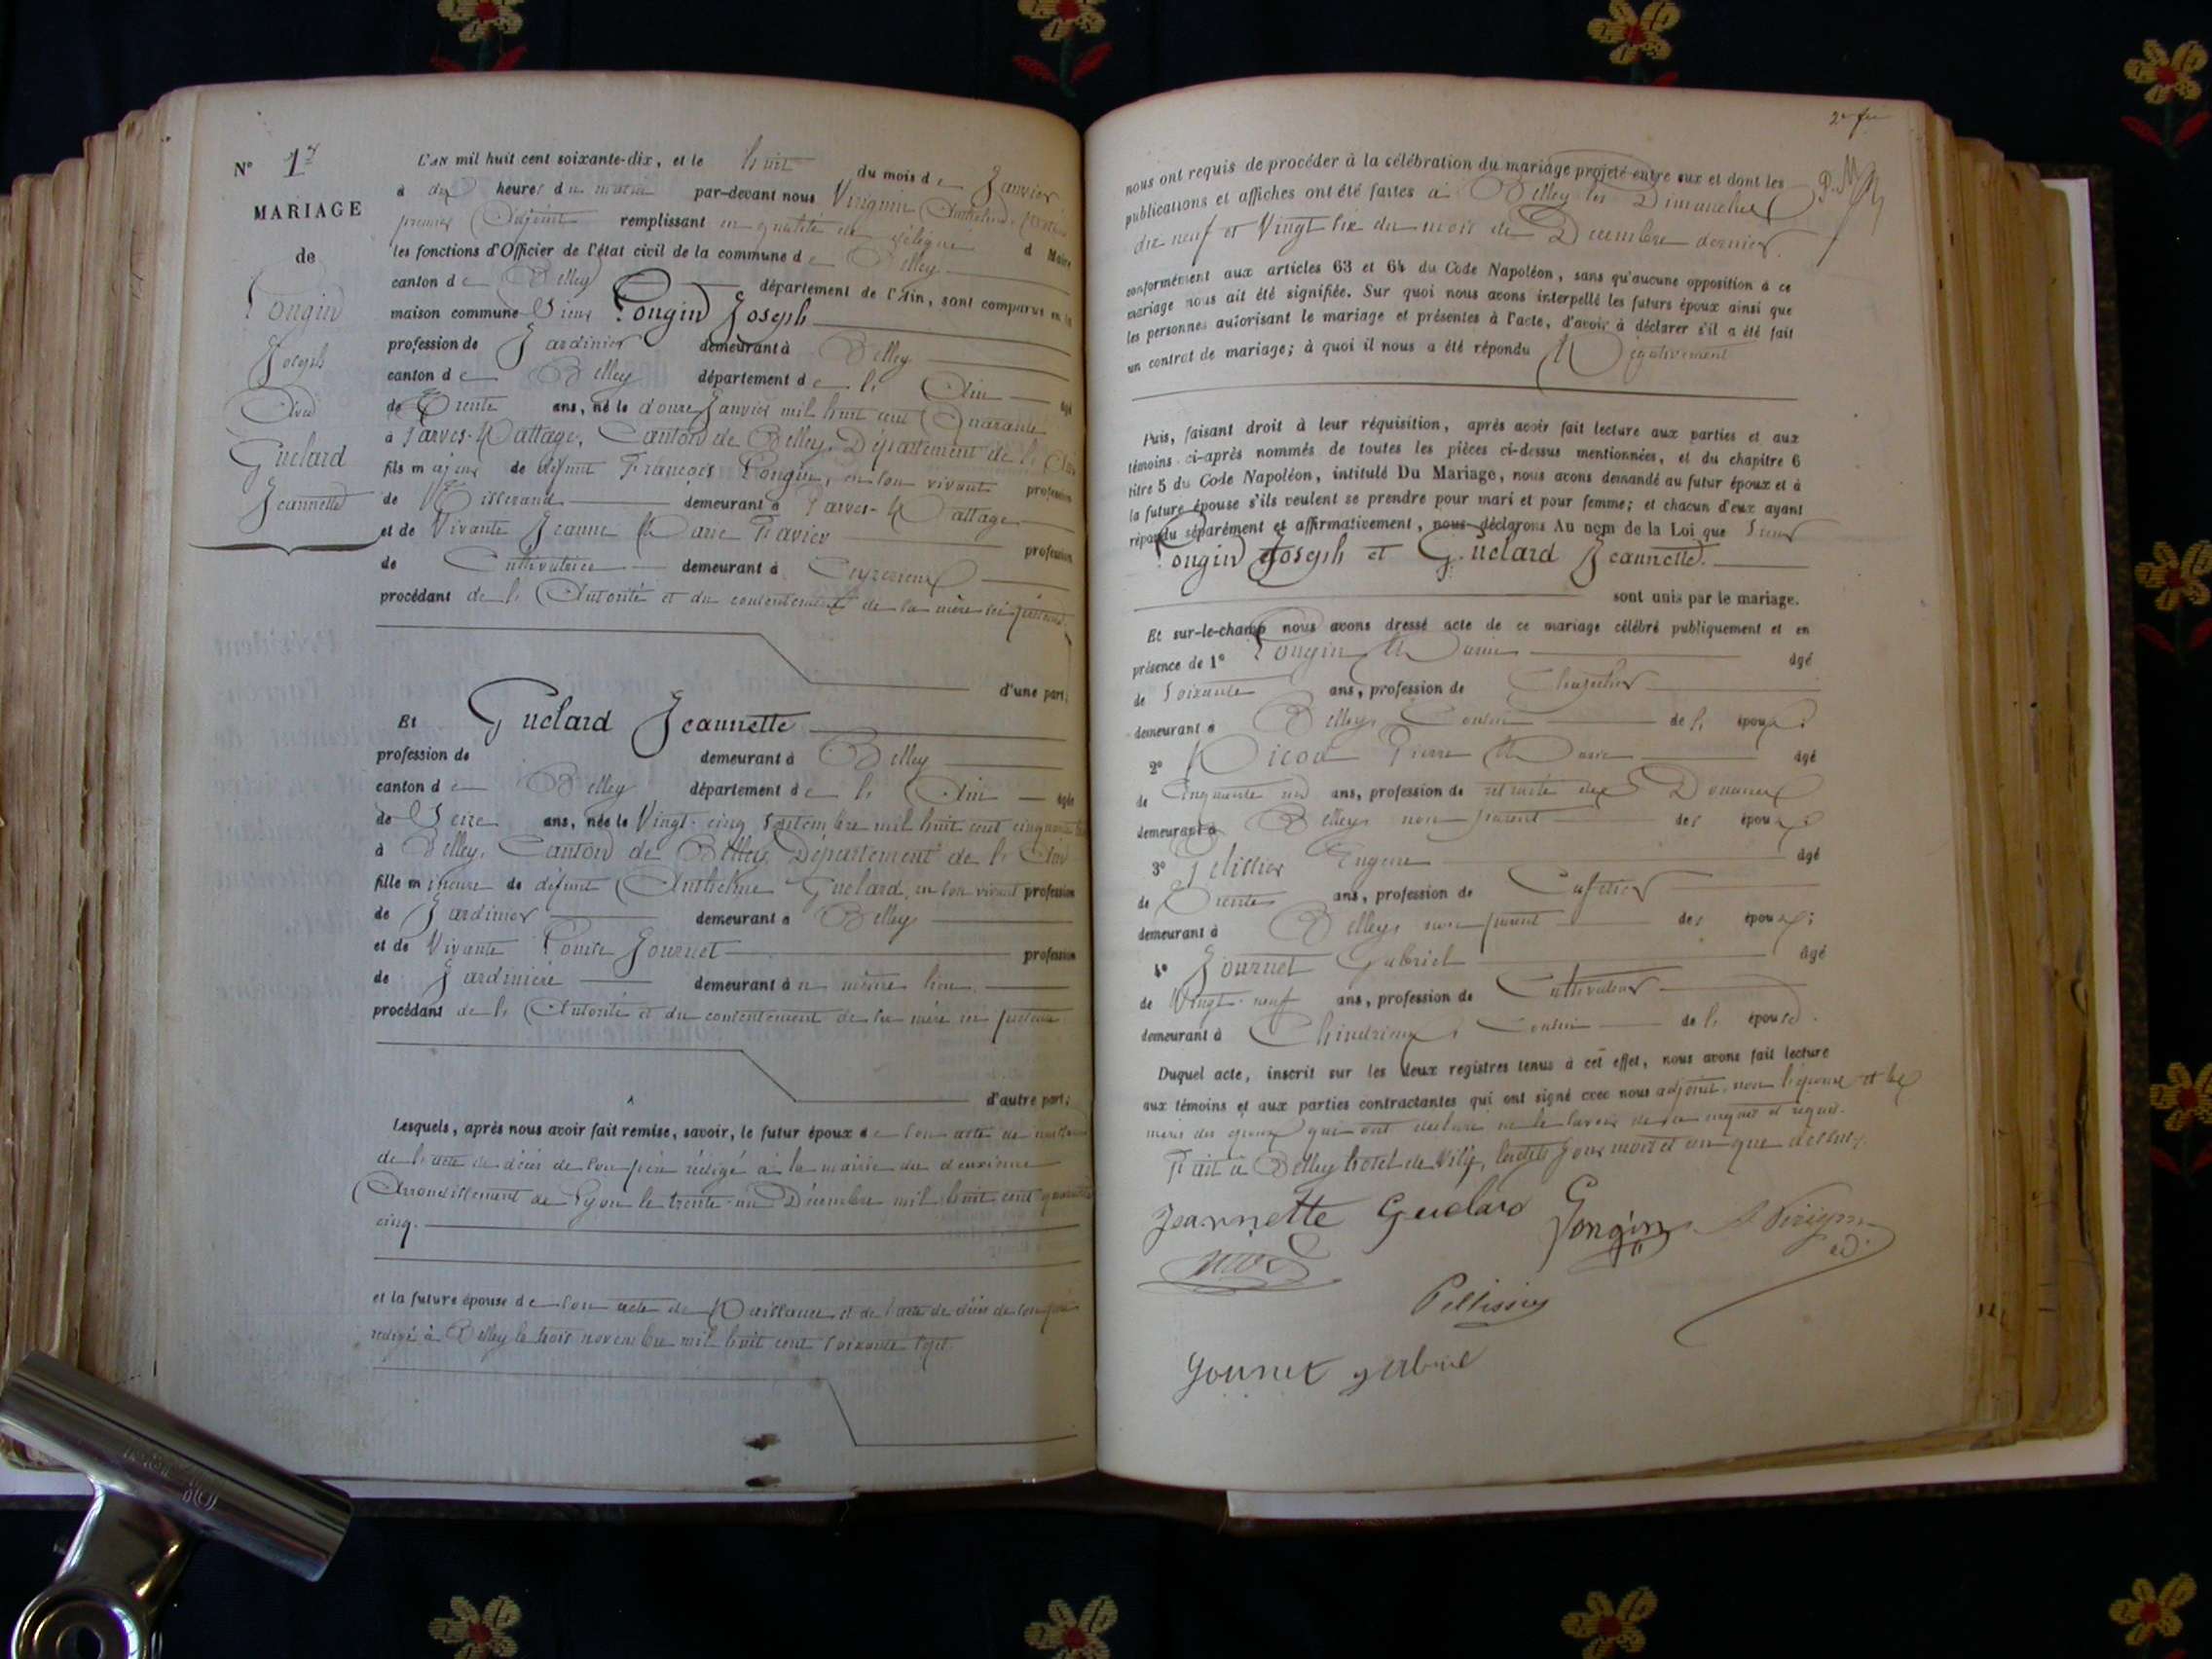 N° 1er
MARIAGE
de
Longin
Joseph
Avec
Guélard
Jeannette
L'AN mil huit cent soixante-dix, et le huit du mois de Janvier
à dix heures du matin par-devant nous
premier Adjoint remplissant en qualité de délégué d Maire
les fonctions d'Officier de l'état civil de la commune de Belley
canton de Belley département de l'Ain, sont comparus en la
maison commune Sieur Longin Joseph
profession de Jardinier demeurant à Belley
canton de Belley département de l' Ain âgé
de Trente ans, né le douze Janvier mil huit cent Quarante
à Parves-Nattages, Canton de Belley, Département de l'Ain
fils majeur de défunt François Longin, en son vivant profession
de Tisserand demeurant à Parves-Nattages
et de Vivante Jeanne Marie Travier profession
de Cultivatrice demeurant à Ceyzerieux
procédant de l'Autorité et du consentement de sa mère ici présente
d'une part;
Et Guélard Jeannette
profession de demeurant à Belley
canton de Belley département de l' Ain âgée
de Seize ans, née le Vingt-cinq Septembre mil huit cent cinquante
à Belley, Canton de Belley, Département de l'Ain
fille mineure de défunt Anthelme Guélard, en son vivant profession
de Jardinier demeurant à Belley
et de Vivante Louise Journet profession
de Jardinière demeurant à u même lieu
procédant de l'Autorité et du consentement de sa mère ici présente
d'autre part;
Lesquels, après nous avoir fait remise, savoir, le futur époux de son acte de
de l'acte de décès de son père rédigé à la mairie du deuxième
Arrondissement de Lyon le trente-un Décembre mil huit cent quarante
cinq.
et la future épouse de son acte de Naissance et de l'acte de décès de son père
rédigé à Belley le trois novembre mil huit cent soixante sept.
2e
nous ont requis de procéder à la célébration du mariage projeté entre eux et dont les
publications et affiches ont été faites à Belley les Dimanches
dix neuf et Vingt six du mois de Décembre dernier
conformément aux articles 63 et 64 du Code Napoléon, sans qu'aucune opposition à ce
mariage nous ait été signifiée. Sur quoi nous avons interpellé les futurs époux ainsi que
les personnes autorisant le mariage et présentes à l'acte, d'avoir à déclarer s'il a été fait
un contrat de mariage; à quoi il nous a été répondu Négativement
Puis, faisant droit à leur réquisition, après avoir fait lecture aux parties et aux
témoins ci-après nommés de toutes les pièces ci-dessus mentionnées, et du chapitre 6
titre 5 du Code Napoléon, intitulé Du Mariage, nous avons demandé au futur époux et à
la future épouse s'ils veulent se prendre pour mari et pour femme; et chacun d'eux ayant
répondu séparément et affirmativement, nous déclarons Au nom de la Loi que Sieur
Longin Joseph et Guélard Jeannette.
sont unis par le mariage.
Et sur-le-champ nous avons dressé acte de ce mariage célébré publiquement et en
présence de 1° Longin Marie âgé
de Soixante ans, profession de Chapelier
demeurant à Belley, Cousin de l' époux;
2° Pierre Marie âgé
de Cinquante un ans, profession de retraité des Douanes
demeurant à Belley non parent des époux;
3° Pelissier Eugène âgé
de Trente ans, profession de Cafetier
demeurant à Belley, non parent des époux;
4° Journet Gabriel âgé
de Vingt-neuf ans, profession de Cultivateur
demeurant à Chindrieux, Cousin de l' épouse.
Duquel acte, inscrit sur les deux registres tenus à cet effet, nous avons fait lecture
aux témoins et aux parties contractantes qui ont signé avec nous adjoint, non l'époux et les
mères des époux qui ont déclaré ne le savoir de ce enquis et requis.
Fait à Belley hotel de Ville, lesdits jour mois et an que dessus.
Jeannette Guelard Longin
Pellissier
Journet gabriel